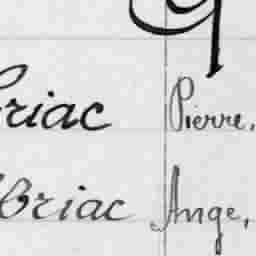 Briac Pierre,
Briac Ange,